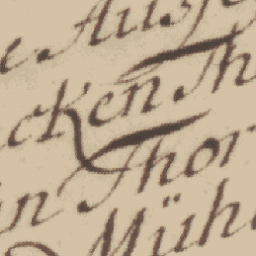 e Ausf
cken Th
n Thor
Müh